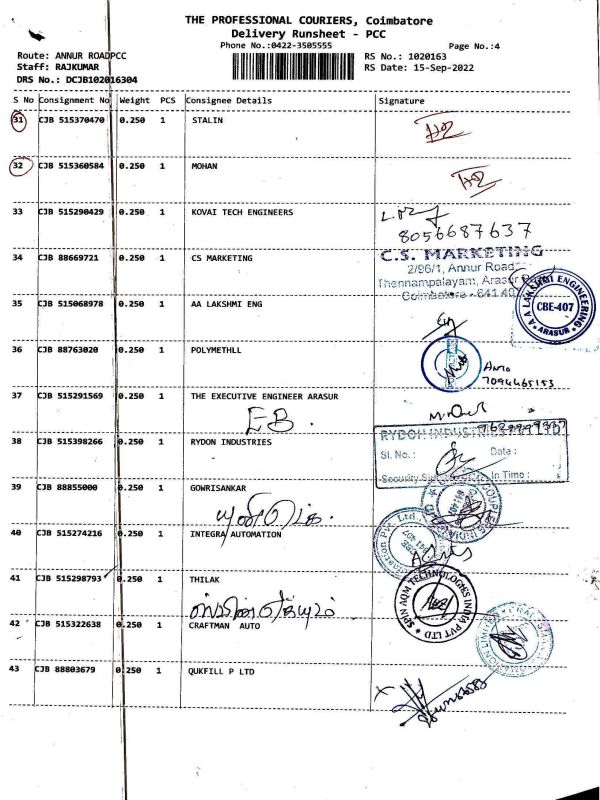 THE PROFESSIONAL COURIERS, Coimbatore
Delivery Runsheet - PCC
Phone No.:0422-3505555
Page No.:4
Route: ANNUR ROADPCC
RS No.: 1020163
Staff: RAJKUMAR
RS Date: 15-Sep-2022
DRS No.: DCJB102016304
S No Consignment No Weight PCS Consignee Details Signature
31 CJB 515370470 0.250 1 STALIN
32 CJB 515360584 0.250 1 MOHAN
33 CJB 515290429 0.250 1 KOVAI TECH ENGINEERS
8056687637
34 CJB 88669721 0.250 1 CS MARKETING
C.S. MARKETING
2/96/1, Annur Road
Thennampalayam, Arasur
Coimbatore - 641 40
35 CJB 515068978 0.250 1 AA LAKSHMI ENG
A A LAKSHMI ENGINEERING
CBE-407
ARASUR
36 CJB 88763020 0.250 1 POLYMETHLL
7094465153
37 CJB 515291569 0.250 1 THE EXECUTIVE ENGINEER ARASUR
EB.
38 CJB 515398266 0.250 1 RYDON INDUSTRIES
RYDON INDUSTRIES
Sl. No.: Date:
Security In Time:
39 CJB 88855000 0.250 1 GOWRISANKAR
40 CJB 515274216 0.250 1 INTEGRA AUTOMATION
41 CJB 515298793 0.250 1 THILAK
SPN AQM TECHNOLOGIES INDIA PVT LTD
42 CJB 515322638 0.250 1 CRAFTMAN AUTO
43 CJB 88803679 0.250 1 QUKFILL P LTD